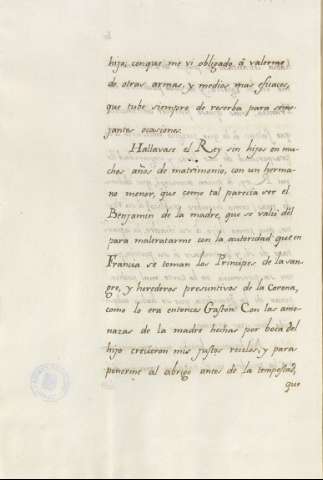 hija; conque me vi obligado â valerme
de otras armas, y medios mas eficaces,
que tube siempre de reserba para seme
jantes ocasiones.
Hallavase el Rey sin hijos en mu
chos años de matrimonio, con un herma
no menor, que como tal parecia ser el
Benjamin de la madre, que se valió del
para maltratarme con la autoridad que en
Francia se toman los Principes de la san
gre, y herederos presuntivos de la Corona,
como lo era entonces Gaston. Con las ame
nazas de la madre hechas por boca del
hijo crecieron mis justos recelos, y para
ponerme al abrigo antes de la tempestad,
que